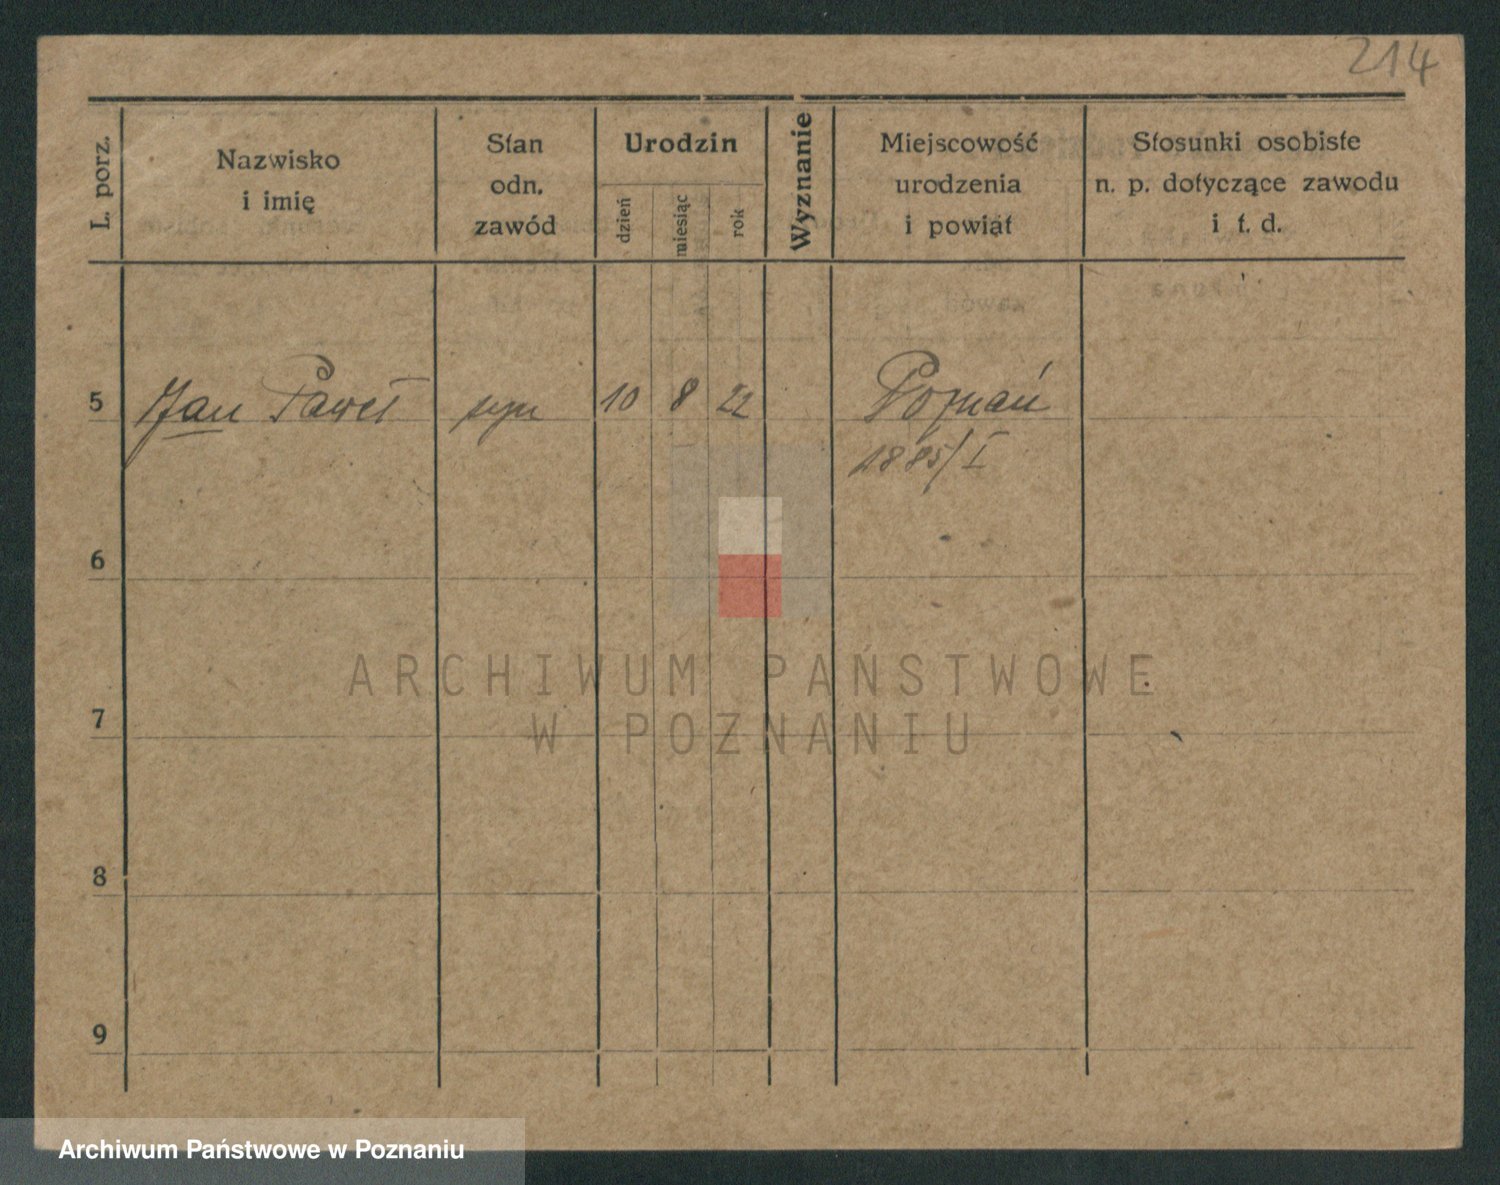 214
L. porz.
Nazwisko
i imię
Stan
odn.
zawód
Urodzin
dzień
miesiąc
rok
Wyznanie
Miejscowość
urodzenia
i powiat
Stosunki osobiste
n. p. dotyczące zawodu
i t. d.
5 Jan Paweł syn 10 8 22 Poznań
1885/I
6
7
8
9
ARCHIWUM PAŃSTWOWE
W POZNANIU
Archiwum Państwowe w Poznaniu